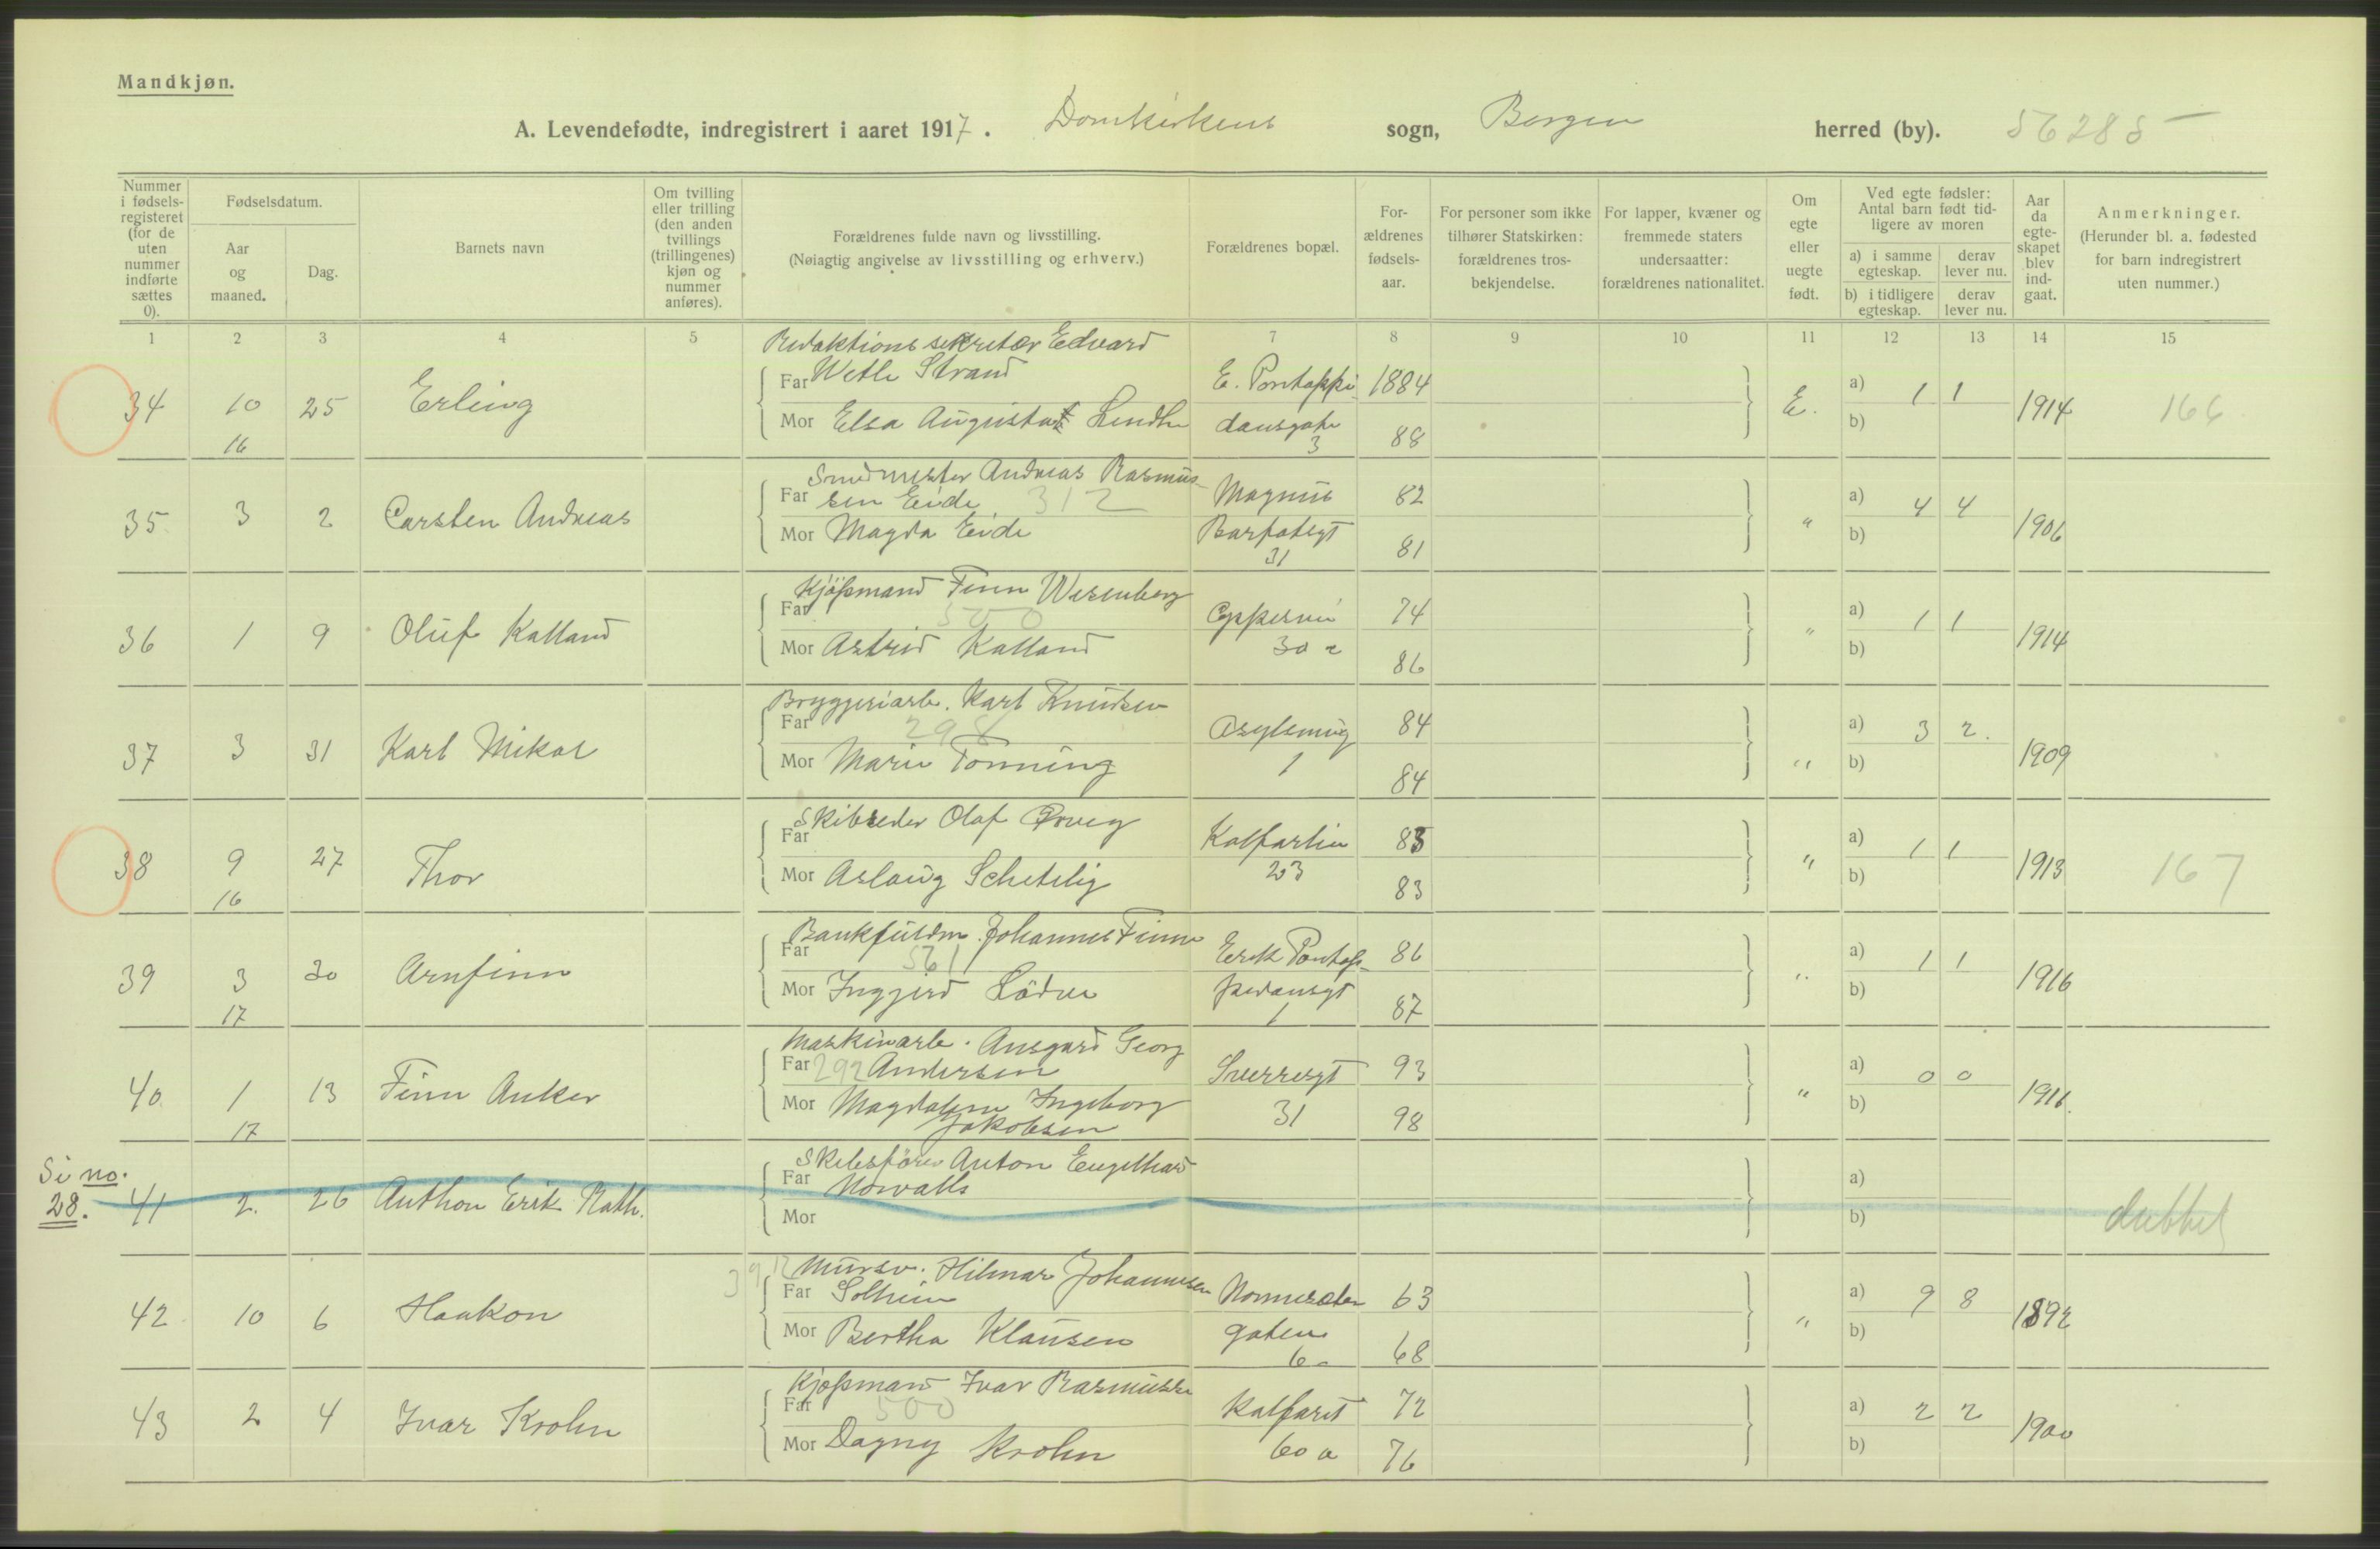 Mandkjøn.
A. Levendefødte, indregistrert i aaret 1917. Domkirkens sogn, Bergen herred (by). 56285
Nummer i fødselsregisteret (for de uten nummer indførte sættes 0).
Fødselsdatum.
Aar og maaned.
Dag.
Barnets navn
Om tvilling eller trilling (den anden tvillings (trillingenes) kjøn og nummer anføres).
Forældrenes fulde navn og livsstilling.
(Nøiagtig angivelse av livsstilling og erhverv.)
Forældrenes bopæl.
Forældrenes fødselsaar.
For personer som ikke tilhører Statskirken: forældrenes trosbekjendelse.
For lapper, kvæner og fremmede staters undersaatter: forældrenes nationalitet.
Om egte eller uegte født.
Ved egte fødsler: Antal barn født tidligere av moren
a) i samme egteskap.
derav lever nu.
b) i tidligere egteskap.
derav lever nu.
Aar da egteskapet blev indgaat.
Anmerkninger.
(Herunder bl. a. fødested for barn indregistrert uten nummer.)
1 2 3 4 5 7 8 9 10 11 12 13 14 15
Redaktionssekretær Edvard
34 10 25 Erling Far Wetle Strand E. Pontoppi- 1884 E. a) 1 1 1914 166
16 Mor Elsa Augusta Lindh dansgate 3 88 b)
Smedmester Andreas Rasmus-
35 3 2 Carsten Andreas Far sen Eide 312 Magnus 82 " a) 4 4 1906
Mor Magda Eide Barfotsgt 31 81 b)
Kjøpmand Finn Wesenberg
36 1 9 Oluf Kalland Far 500 74 " a) 1 1 1914
Mor Astrid Kalland 30 86 b)
Bryggeriarb. Karl Knudsen
37 3 31 Karl Mikal Far 298 Asylsmug 84 " a) 3 2. 1909
Mor Marie Tonning 1 84 b)
Skibsreder Olaf Ørveg
38 9 27 Thor Far Kalfarlien 85 " a) 1 1 1913 167
16 Mor Aslaug Schetelig 23 83 b)
Bankfuldm. Johannes Finne
39 3 30 Arnfinn Far 561 Erik Pontop- 86 " a) 1 1 1916
17 Mor Ingjerd pidansgt 1 87 b)
Maskinarb. Ansgard Georg
40 1 13 Finn Anker Far 292 Andersen Sverresgt 93 " a) 0 0 1916.
17 Mor Magdalene Ingeborg 31 98 b)
Jakobsen
Si no. 28.
Skibsfører Anton Engelhard
41 2. 26 Anthon Erik Rath. Far Norvalls a) dubbel
Mor b)
Mursv. Hilmar Johannesen
42 10 6 Haakon Far Solheim Nonneseter 63 " a) 9 8 1892
Mor Bertha Klausen gaten 6 68 b)
Kjøpmand Ivar Rasmussen
43 2 4 Ivar Krohn Far 500 Kalfaret 72 a) 2 2 1900
Mor Dagny Krohn 60 a 76 b)